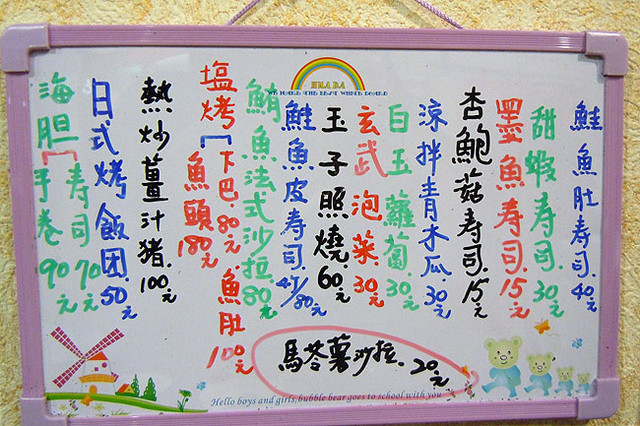 鮭魚肚壽司.40元
甜蝦寿司.30元
墨魚寿司.15元
杏鮑菇寿司.15元
涼拌青木瓜.30元
白玉蘿蔔.30元
玄武泡菜.30元
玉子照燒.60元
鮭魚皮寿司.4个/80元
鮪魚法式沙拉.80元
塩烤
下巴.80元
魚頭180元
魚肚100元
熱炒薑汁豬.100元
日式烤飯团.50元
海胆
寿司70元
手卷90元
馬苓薯沙拉.20元
Hello boys and girls, bubble bear goes to school with you